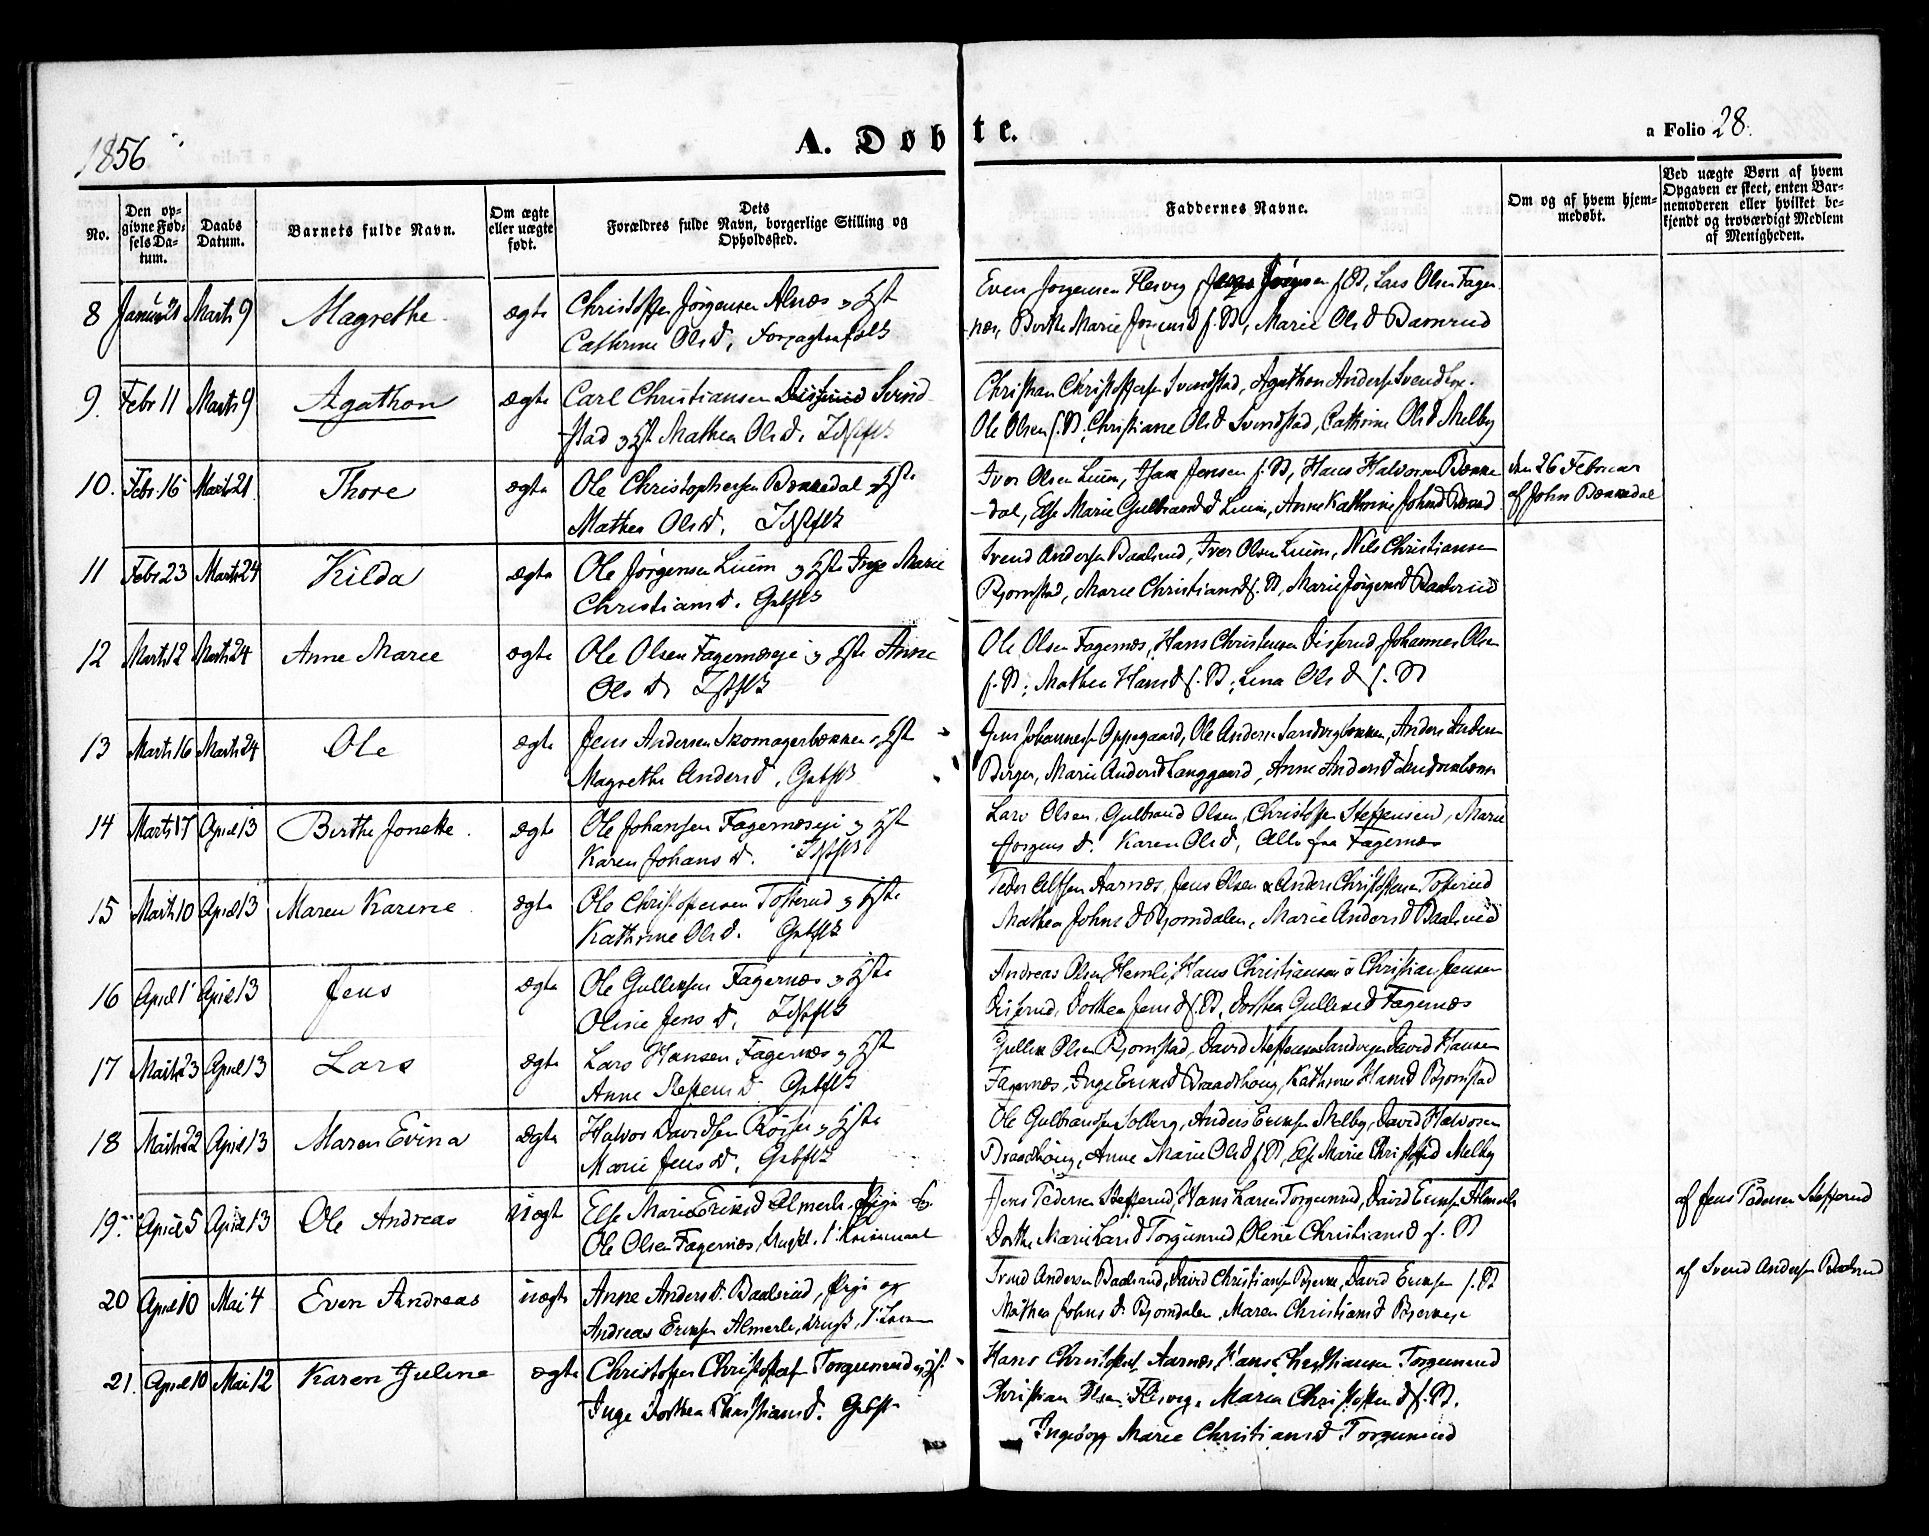 1856
A. Døbte.
a Folio 28.
No.
Den opgivne Fødselsdatum.
Daabs Datum.
Barnets fulde Navn.
Om ægte eller uægte født.
Dets Forældres fulde Navn, borgerlige Stilling og Opholdssted.
Faddernes Navne.
Om og af hvem hjemmedøbt.
Ved uægte Børn af hvem Opgaven er skeet, enten Barnemoderen eller hvilket bekjendt og troværdigt Medlem af Menigheden.
8 Januar 21 Marts 9 Magrethe ægte Christoffer Jørgensen Alnæs og
Cathrine Ols D,
Even Jørgensen Flesvig, Lars Olsen Fager-
næs, Berthe Marie Jørgens D f. St, Marie Ols D
9. Febr 11 Marts 9 Agathon ægte Carl Christiansen Svend-
stad og Mathea Ols D.
Christian Christoffersen Svendstad, Agathon Andersen
Ole Olsen f. St, Christiane Ols D Svendstad, Cathrine Ols D Melby
10. Febr. 16 Marts 21 Thore ægte Ole Christophersen Bækkedal
Mathea Ols D.
Iver Olsen Luim, Jensen f. St, Hans Halvorsen Bække-
dal, Else Marie Gulbrands D Luim, Anne Kathrine Johns D
den 26 Februar
af John Bækkedal
11 Febr 23 Marts 24 Kilda ægte Ole Jørgensen Luim og Inge Marie
Christians D.
Svend Andersen Baalsrud, Iver Olsen Luim, Nils Christiansen
Bjornstad, Maree Christians D f. St, Marie Jørgens D Baalsrud
12 Marts 12 Marts 24 Anne Marie ægte Ole Olsen Fagernæseje og Anne
Ols D,
Ole Olsen Fagernæs, Hans Christensen Diserud, Johannes Olsen
f. St, Mathea Hans D f. St, Lena Ols D f. St
13 Marts 16 Marts 24 Ole ægte Jens Andersen Skomagerbakken
Magrethe Anders D,
Jens Johannesen Oppegaard, Ole Andersen Sandvigbakken, Anders
Berger, Marie Anders D Langgaard, Anne Anders D
14 Marts 17 April 13 Berthe Jonette. ægte Ole Johansen Fagernæseje og
Karen Johans D.
Lars Olsen, Gulbrand Olsen, Christoffer Steffensen, Marie
Jørgens D. Karen Ols D, Alle fra Fagernæs
15 Marts 10 April 13 Maren Karine ægte Ole Christophersen Tosterud og
Kathrine Ols D.
Peder Alfsen Aarnæs, Jens Olsen & Anders Christoffersen Tosterud
Mathea Johns D Bjorndalen, Marie Anders D Baalsrud
16 April 1 April 13 Jens ægte Ole Gulliksen Fagernæs og
Oline Jens D.
Andreas Olsen Hemli, Hans Christiansen & Christian Jensen
Diserud, Dorthea Jens D f. St, Dorthea Gulliks D Fagernæs
17 Marts 23 April 13 Lars ægte Lars Hansen Fagernæs og
Anne Steffens D.
Gullik Olsen Bjornstad, David Steffensen Sandvigen, David Hansen
Fagernæs, Inge Eriks D Braadhoug, Kathrine Hans D Bjornstad
18 Marts 22 April 13 Maren Evina ægte Halvor Davidsen og
Marie Jens D.
Ole Gulbrandsen Solberg, Anders Eriksen Melby, David Halvorsen
Braadhoug, Anne Marie Ols D f. St, Else Marie Melby
19. April 5 April 13 Ole Andreas uægte Else Marie Eriks D Almerli, Pige &
Ole Olsen Fagernæs, Ungkl.
Jens Pedersen Stefferud, Hans Larsen Torgunrud, David Eriksen Almerli
Dorthe Marie Lars D Torgunrud, Oline Christians D f. St
af Jens Pedersen Stefferud
20 April 10 Mai 4 Even Andreas uægte Anne Anders D. Baalsrud, Pige og
Andreas Eriksen Almerli,
Svend Andersen Baalsrud, David Christiansen, David Eriksen f. St
Mathea Johns D. Bjorndalen, Maren Christians D
af Svend Andersen Baalsrud
21. April 10 Mai 12 Karen Juline ægte Christoffer Christoffersen Torgunrud
Inge Dorthea Christians D.
Hans Christoffersen Aarnæs, Hans Christiansen Torgunrud
Christian Olsen Flesvig, Maren Christoffers D f. St.
Ingeborg Marie Christians D Torgunrud